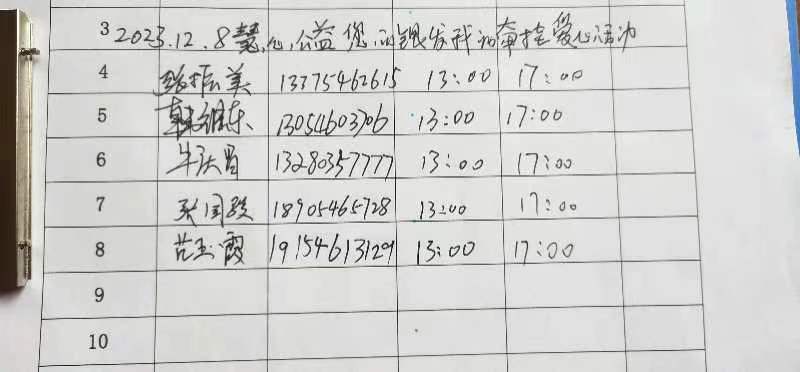 3 2023.12.8慧心公益您的银发我的牵挂爱心活动
4 振美 13375462615 13:00 17:00
5 韩继东 13054603706 13:00 17:00
6 牛庆昌 13280357777 13:00 17:00
7 张国 18905465728 13:00 17:00
8 范玉霞 19154613129 13:00 17:00
9
10